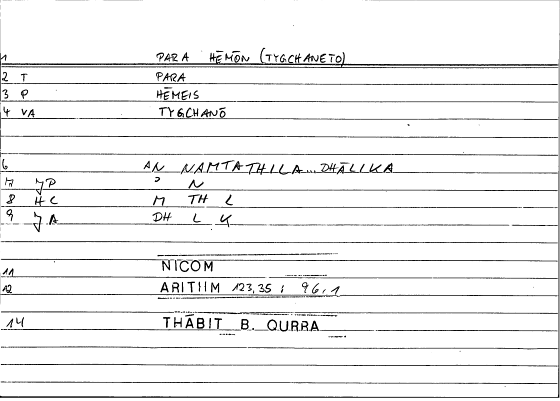 1 PARA HĒMŌN (TYGCHANETO)
2 T PARA
3 P HĒMEIS
4 VA TYGCHANŌ
6 AN NAMTATHILA...DHĀLIKA
7 JP ʾ N
8 HC M TH L
9 JA DH L K
11 NICOM
12 ARITHM 123,35 ; 96,1
14 THĀBIT B. QURRA